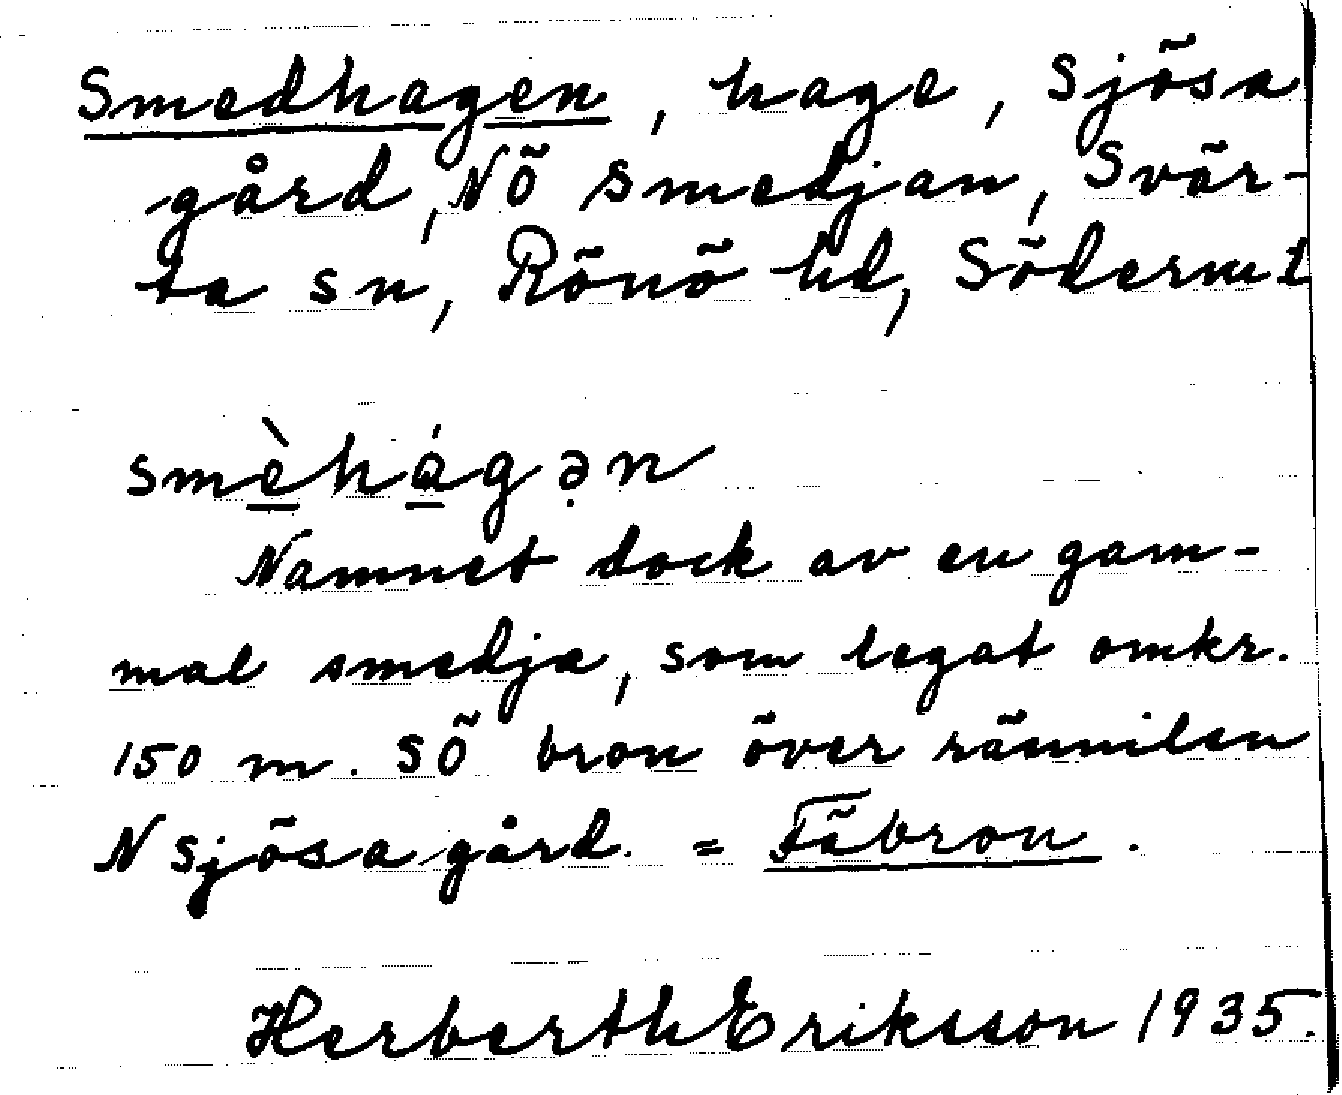 Smedhagen, hage, Sjösa
gård, NÖ smedjan, Svär-
ta sn, Rönö hd, Söderml
smèhágən
Namnet dock av en gam-
mal smedja, som legat omkr.
150 m. SÖ bron över rännilen
N Sjösa gård. = Fäbron.
Herberth Eriksson 1935.